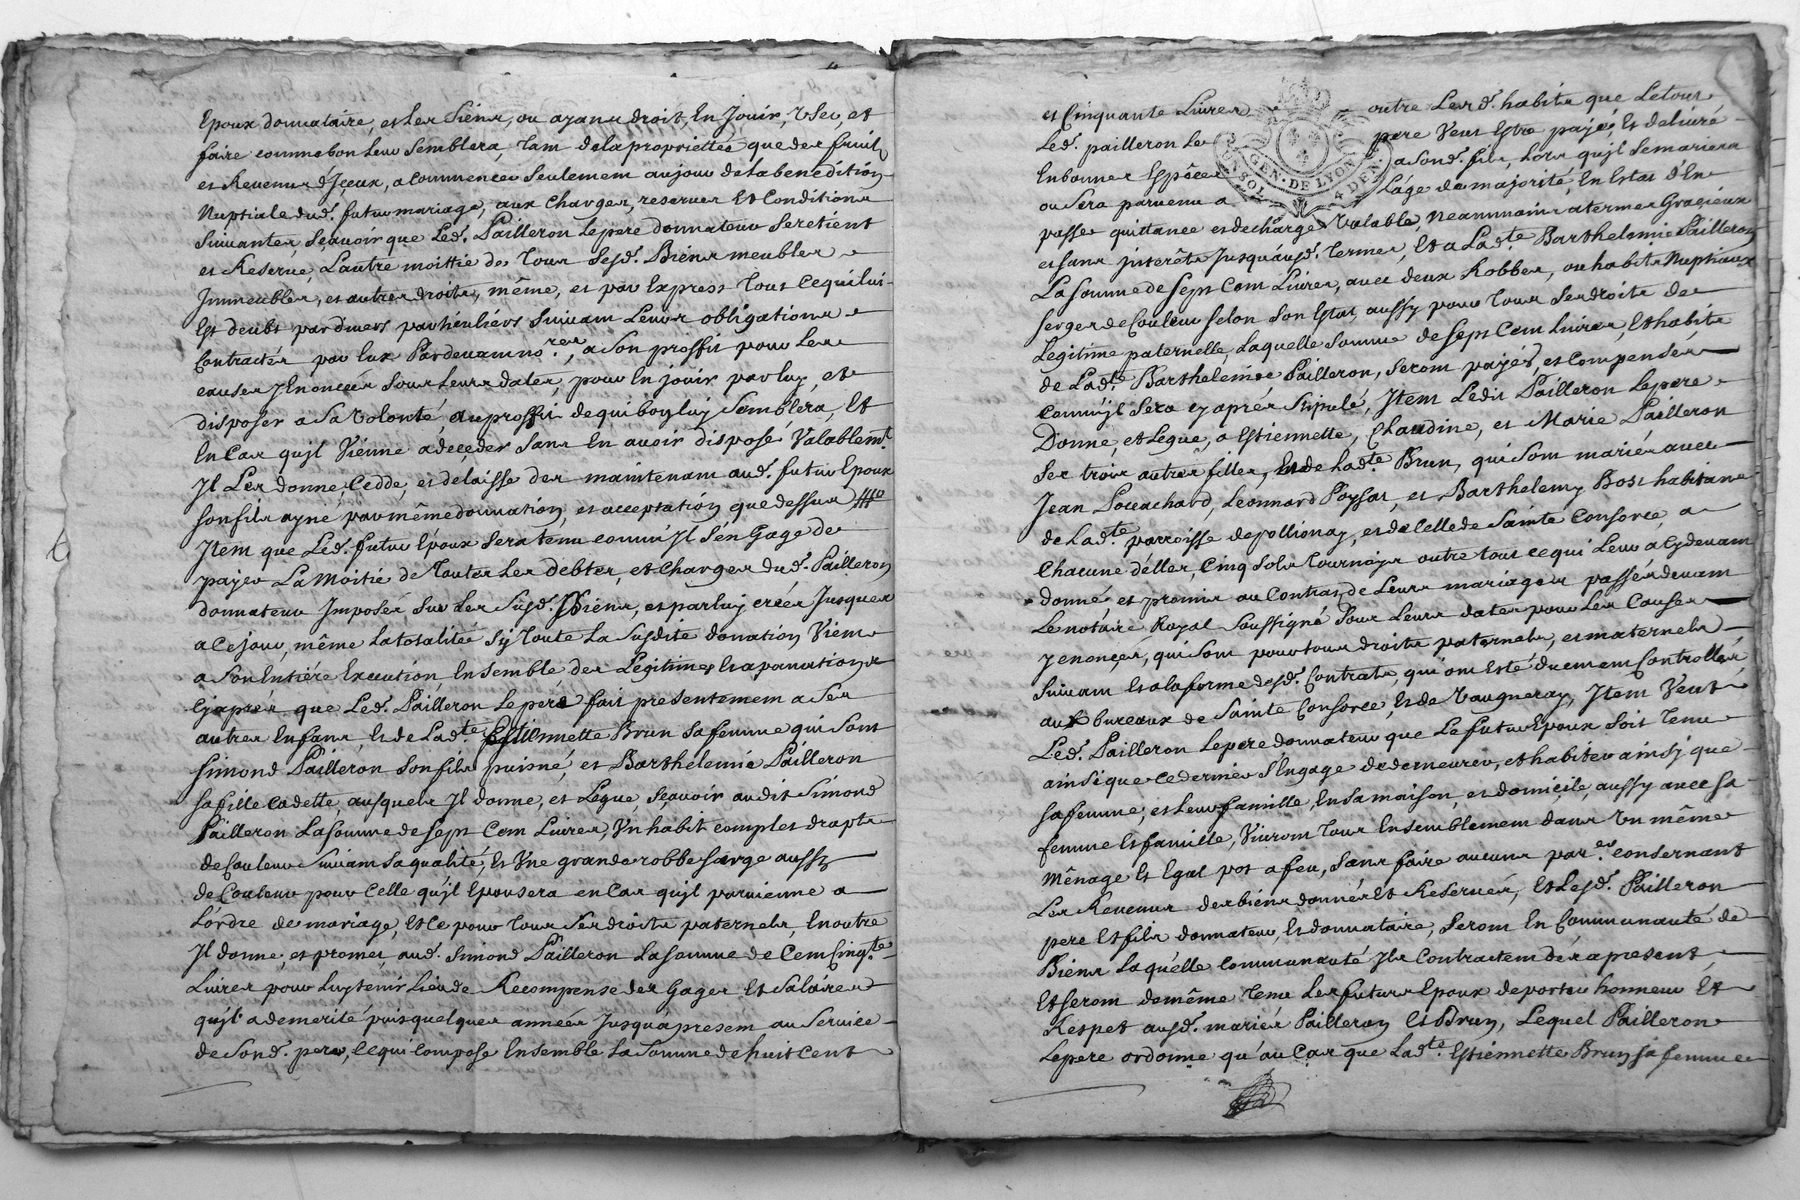 Epoux donnataire, et les Siens, ou ayans droit, En Jouir, User, et
faire comme bon leur Semblera, Tam de la propriettée que des fruits
et Revenus d'Jceux, a commencer Seulement au jour de la benedition
Nuptiale dud. futur mariage, aux charges, reserves Et Conditions
Suivantes, Scavoir que Led. Pailleron Le pere donnateur Se retient
et Reserve, L'autre moittié de Tous Sesd. Biens meubles
Jmmeubles, et autres droits, même, et par Express Tout Ce qui lui
Est deubt par divers particuliers Suivam Leurs obligations
Contractés par Eux Pardevam no.res, a Son proffit pour Les
causes Jl'enoncées Sous Leurs dates, pour En jouir par luy, et
disposer a Sa Volonté, au proffit de qui bon luy Semblera, Et
En Cas qu'jl Vienne a deceder Sans En avoir disposé Valablemt.
Jl Les donne, Cedde, et delaisse des maintenam aud. futur Epoux
Son fils ayné par même donnation, et acceptation que dessus
Jtem que Led. futur Epoux Sera tenu comm'jl S'en Gage de
payer La Moitié de Toutes Les debtes, et charges dud. Pailleron
donnateur Jmposés Sur Les Susd. Biens, et par luy créés Jusques
a Ce jour, même la totalitée Sy Toute La Susdite donnation Viem
a Son Entiére Execution, Ensemble des Legitimes
Cy après que Led. Pailleron Le pere fait presentemem a Ses
autres Enfans, Et de Ladte. Estiennette Brun Sa femme qui Sont
Simond Pailleron Son fils puisné, et Barthelemie Pailleron
Sa fille Cadette, ausquels Jl donne, et Legue, Scavoir audit Simond
Pailleron La Somme de Sept Cem Livres, Un habit complet drapt
de Couleur Suivam Sa qualité, Et Une grande robbe Sarge aussy
de Couleur pour Celle qu'jl Epousera en Cas qu'jl parvienne a
L'ordre de mariage, Et Ce pour Tous Ses droits paternels, En outre
Jl donne, et promet, aud. Simond Pailleron La Somme de Cem Cinqte.
Livres pour Luy tenir Lieu de Recompense des Gages Et Salaires
qu'jl a demerité puis quelques années Jusqu'à presem au Service
de Sond. pere, Ce qui Compose Ensemble La Somme de huit Cent
et Cinquante Livres outre Lesd. habits que Le tout
Led. pailleron Le pere Veut Estre payé, Et delivré
En bonnes Espéces a Sond. fils, Lors qu'jl Se mariera
ou Sera parvenu a L'age de majorité, En Estat d'En
passer quittance et decharge Valable, Neanmoins a termes Gracieux
et Sans jnterêts Jusqu'ausd. Termes, Et a Ladte. Barthelemie Pailleron
La Somme de Sept Cem Livres, avec deux Robbes, ou habits Nuptiaux
Serge de Couleur Selon Son Estat, aussy pour Tous Ses droits de
Legitime paternelle, Laquelle Somme de Sept Cem Livres, Et habits
de Ladte. Barthelemie Pailleron, Serom payés, et Compensés
Comm'jl Sera cy aprés Stipulé, Jtem Ledit Pailleron Le pere
Donne, et Legue, a Estiennette, Claudine, et Marie Pailleron
Ses trois autres filles, Et de Ladte. Brun, qui Som mariés avec
Jean Leonnard Poyssat, et Barthelemy Bost habitans
de Ladte. parroisse de pollionay, et de Celle de Sainte Consorce, a
Chacune d'Elles, Cinq Sols Tournois outre tout ce qui Leur a Cy devam
donné, et promis au Contrat de Leurs mariages passés devam
Le notaire Royal Soussigné Sous Leurs dates pour Les Causes
y enoncées, qui Som pour tous droits paternels, et maternels
Suivam Et a la forme desd. Contrats, qui om Esté duemem Controllés,
aux bureaux de Sainte Consorce, Et de Vaugneray, Jtem Veut
Led. Pailleron Le pere donnateur que Le futur Epoux Soit Tenu
ainsi que Ce dernier S'Engage de demeurer, et habiter ainsj que
Sa femme, et Leur famille, En Sa maison, et domicile, aussy avec Sa
femme Et famille, Vivrom Tous Ensemblemem dans Un même
Ménage Et Egal pot a feu, Sans faire aucuns par.es consernant
Les Revenus des biens donnés Et Reservés, Et Lesd. Pailleron
pere Et fils donnateur, Et donnataire, Serom En Communauté de
Biens Laquelle Communauté Jls Contractem dés a present
Et Serom de même Tenu Les futurs Epoux de porter honneur Et
Respet ausd. mariés Pailleron Et Brun, Lequel Pailleron
Le pere ordonne qu'au Cas que Ladte. Estiennette Brun Sa femme
GEN. DE LYON